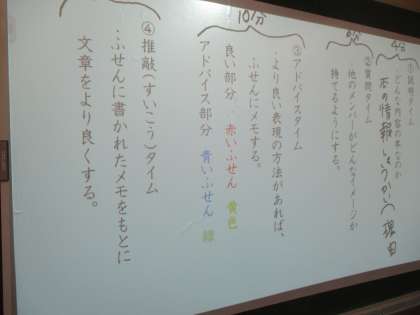 4分
①説明タイム
・どんな内容の本なのか
本の情報
理由
6分
②質問タイム
・他のメンバーがどんなイメージか
持てるようにする。
10分
③アドバイスタイム
・より良い表現の方法があれば、
ふせんにメモする。
良い部分 赤いふせん 黄色
アドバイス部分 青いふせん 緑
④推敲(すいこう)タイム
・ふせんに書かれたメモをもとに
文章をより良くする。